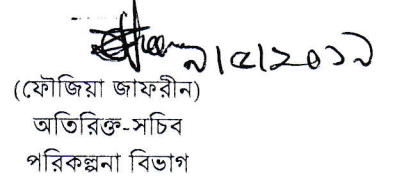 ৯।৫।২০১৯
(ফৌজিয়া জাফরীন)
অতিরিক্ত-সচিব
পরিকল্পনা বিভাগ